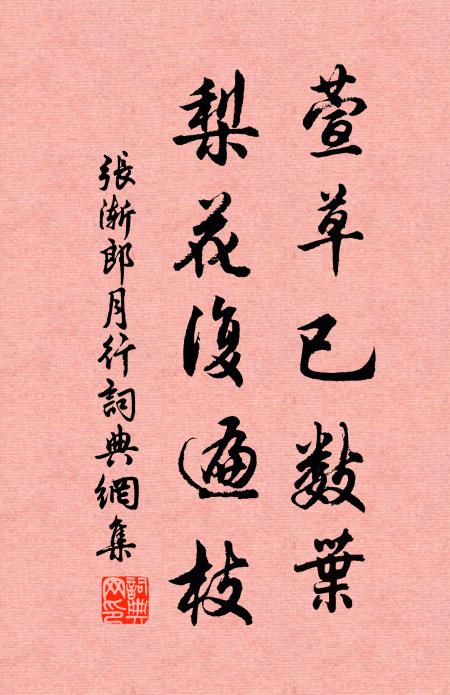 萱草已數葉
梨花復遍枝
張漸郎月行詞典網集
詞典網印